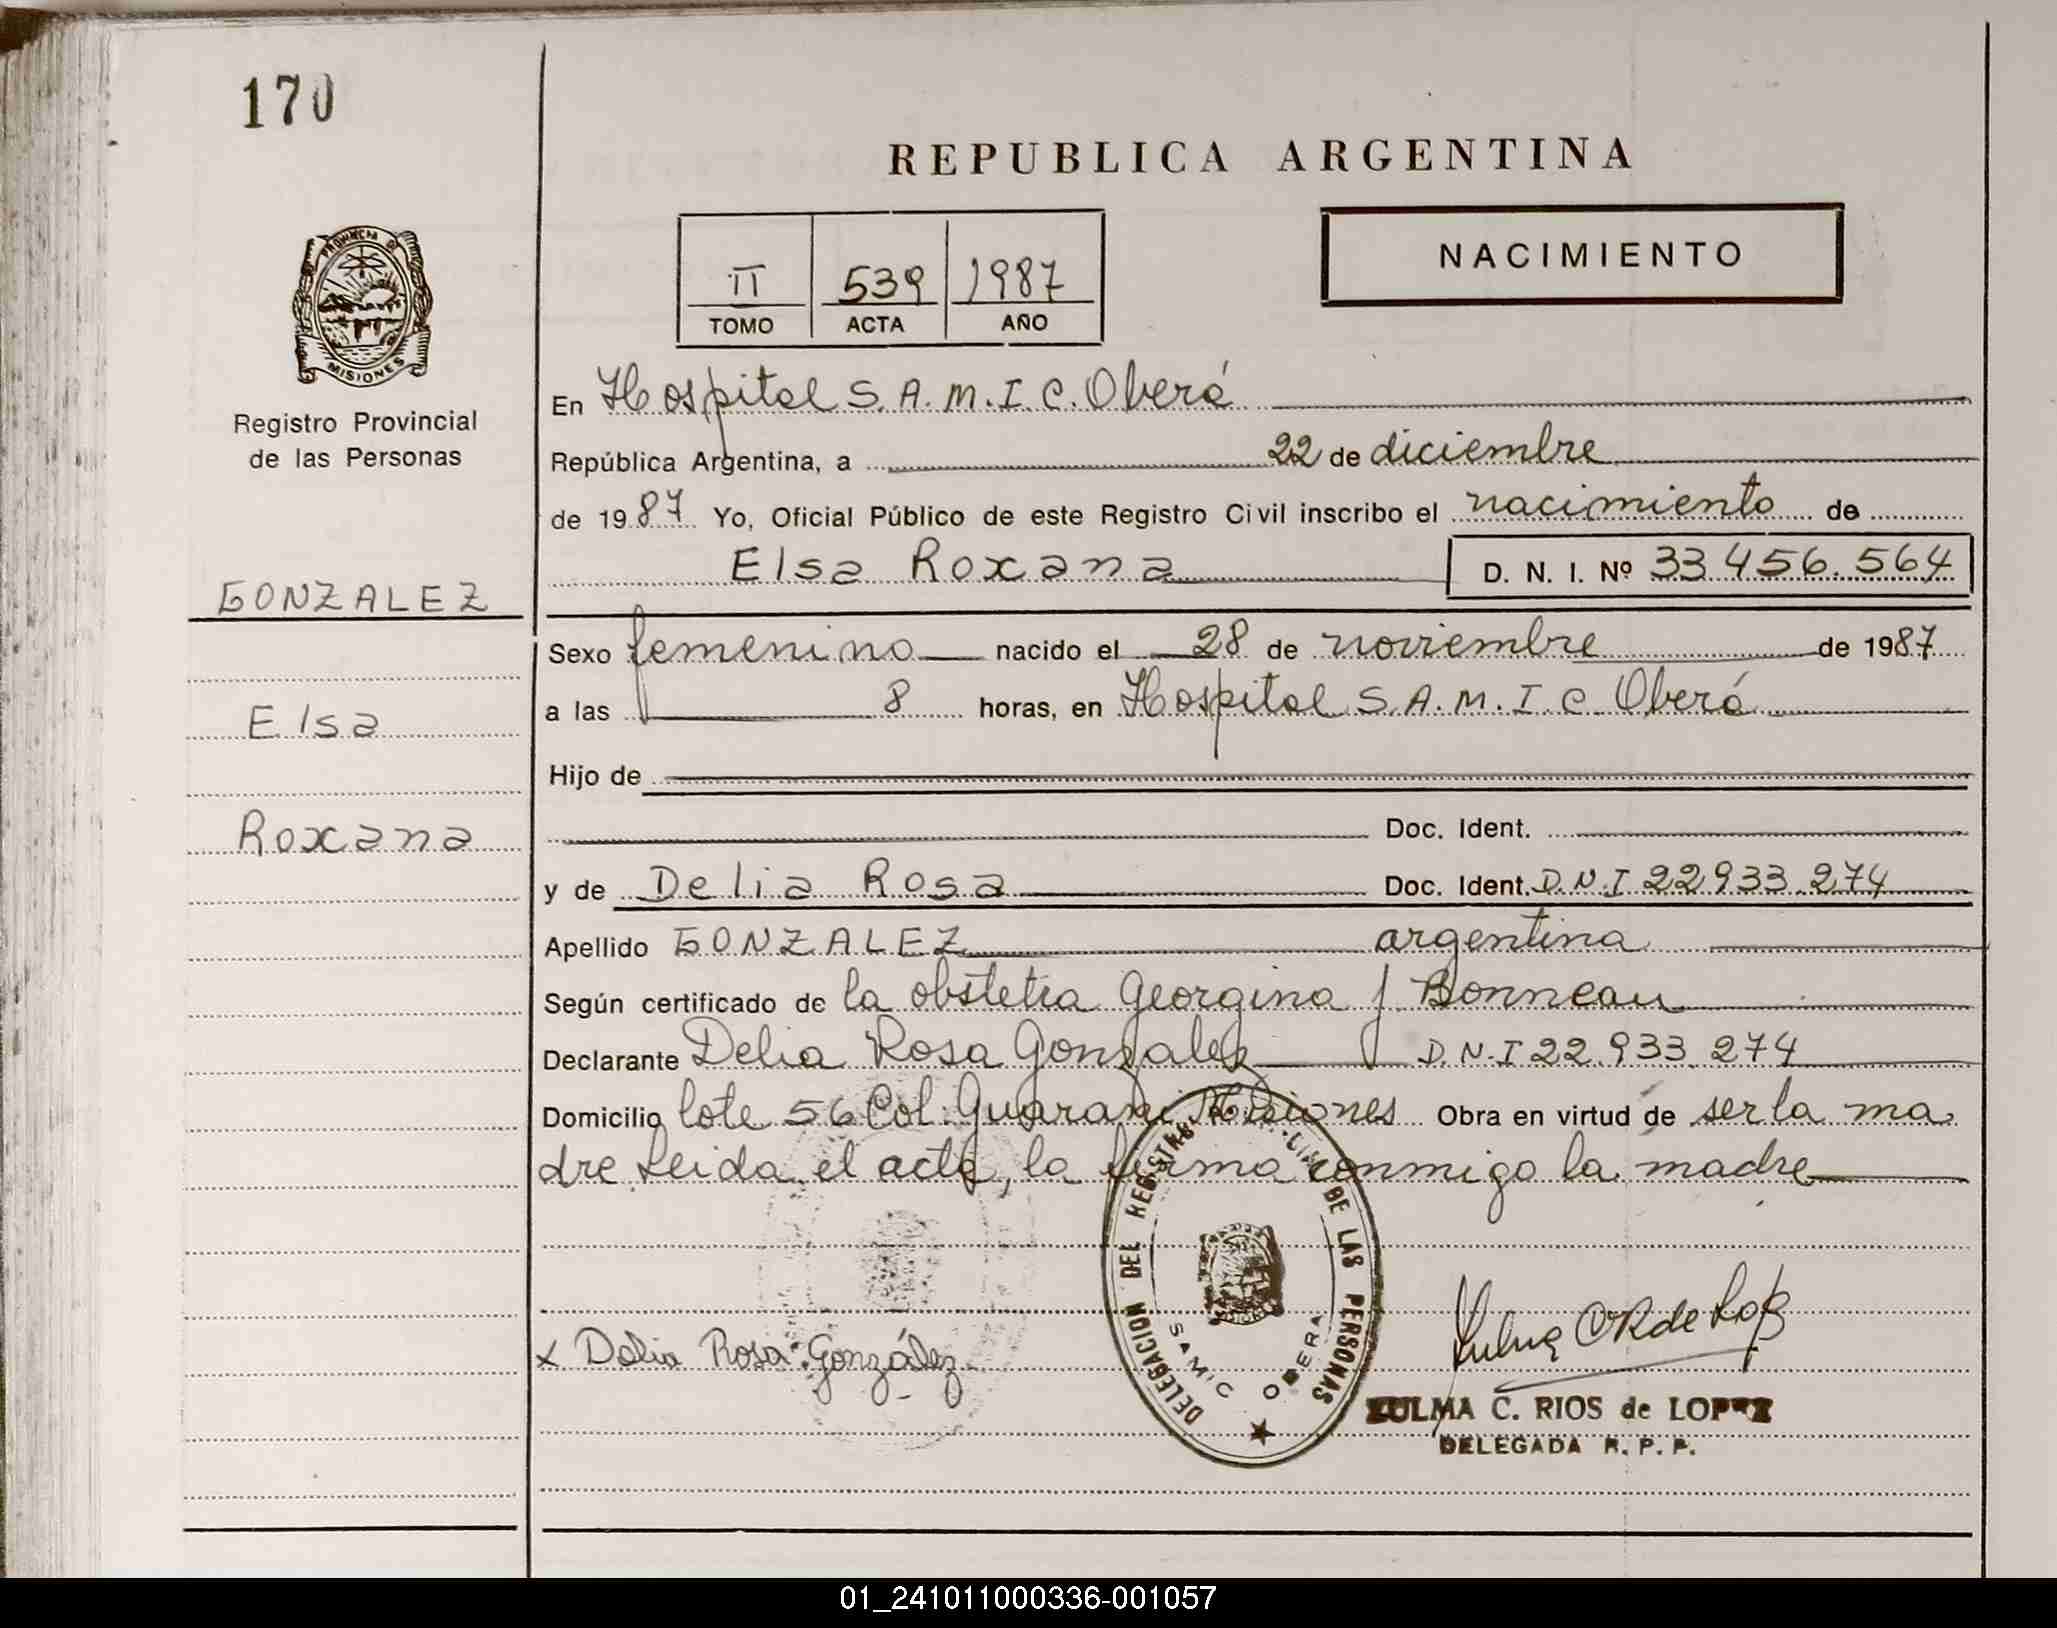 170
REPUBLICA ARGENTINA
NACIMIENTO
II 539 1987
TOMO ACTA AÑO
PROVINCIA D MISIONES
Registro Provincial
de las Personas
GONZALEZ
Elsa
Roxana
En Hospital S.A.M.I.C. Oberá
República Argentina, a 22 de diciembre
de 1987 Yo, Oficial Público de este Registro Civil inscribo el nacimiento de
Elsa Roxana D. N. I. Nº 33.456.564
Sexo femenino nacido el 28 de noviembre de 1987
a las 8 horas, en Hospital S.A.M.I.C. Oberá
Hijo de
Doc. Ident.
y de Delia Rosa Doc. Ident. D.N.I 22.933.274
Apellido GONZALEZ argentina
Según certificado de la obstetra Georgina J Bonneau
Declarante Delia Rosa Gonzalez D.N.I 22.933.274
Domicilio lote 56 Col. Guarani Misiones Obra en virtud de ser la ma
dre Leida el acta, la firma conmigo la madre
DELEGACION DEL REGISTRO DE LAS PERSONAS
SAMIC OBERA
x Delia Rosa González
Zulma C R de Lopez
ZULMA C. RIOS de LOPEZ
DELEGADA R. P. P.
01_241011000336-001057